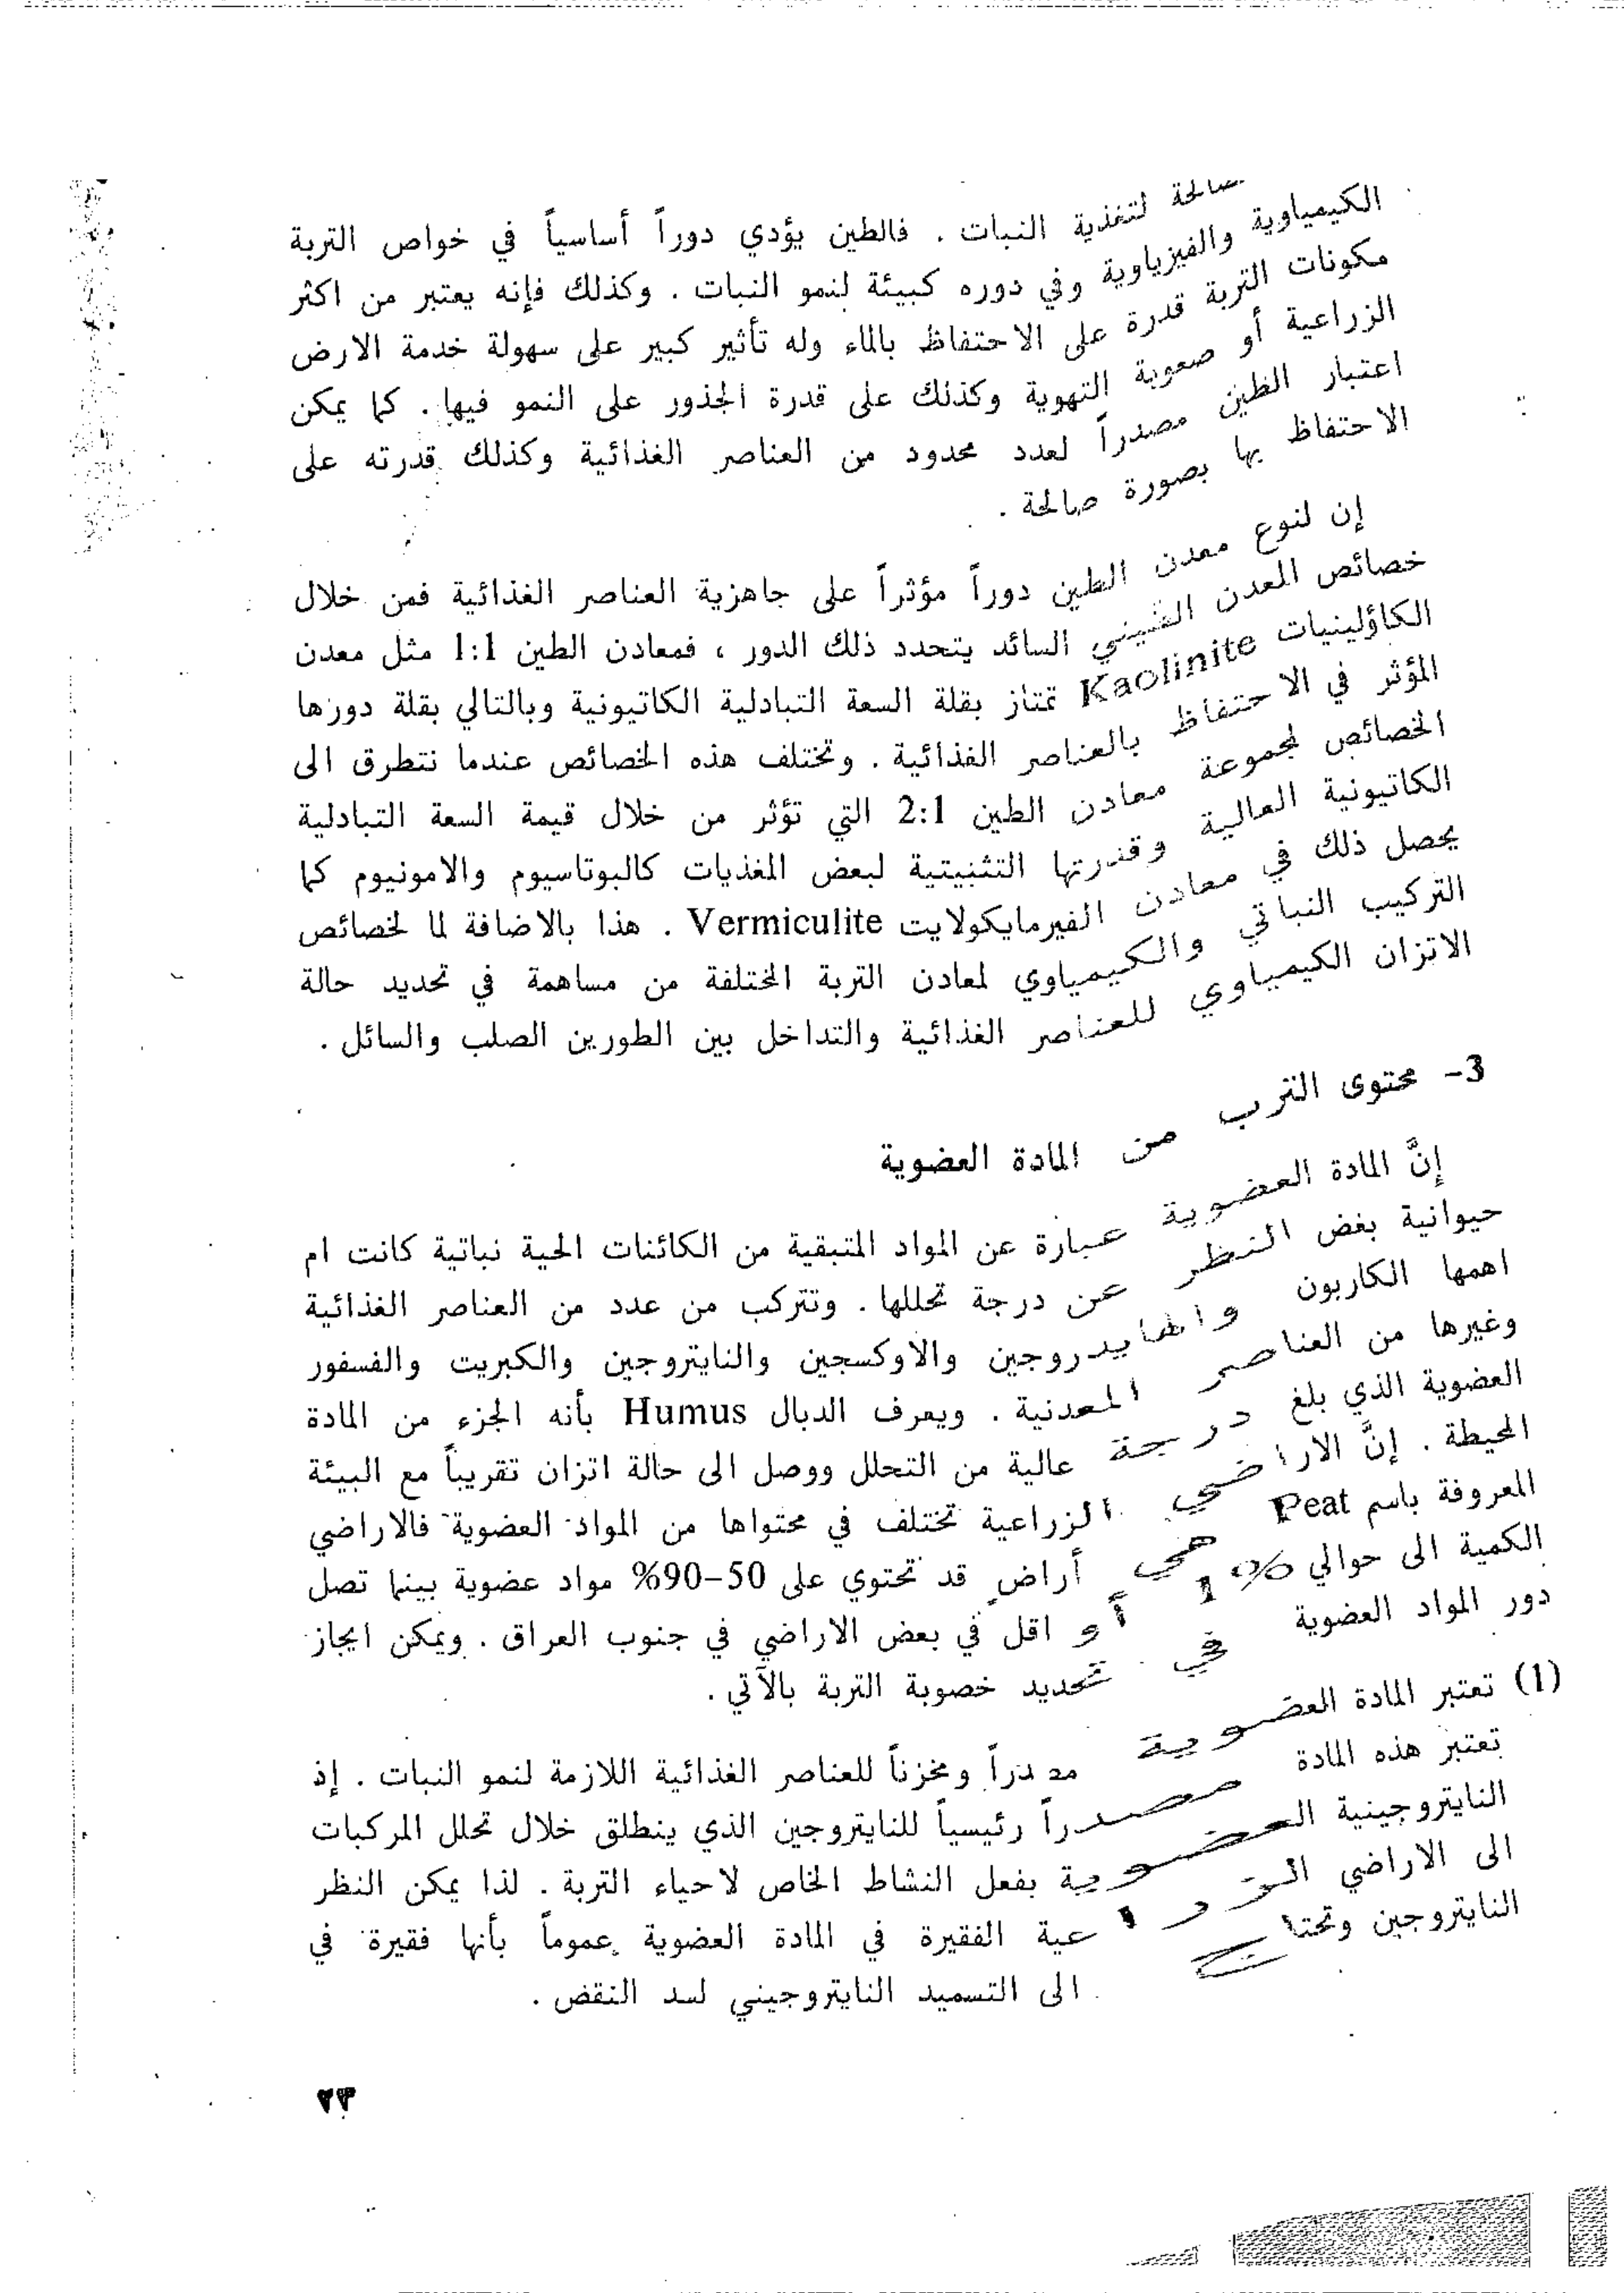 صالحة لتغذية النبات . فالطين يؤدي دوراً أساسياً في خواص التربة
الكيمياوية والفيزياوية وفي دوره كبيئة لنمو النبات . وكذلك فإنه يعتبر من اكثر
مكونات التربة قدرة على الاحتفاظ بالماء وله تأثير كبير على سهولة خدمة الارض
الزراعية أو صعوبة التهوية وكذلك على قدرة الجذور على النمو فيها . كما يمكن
اعتبار الطين مصدراً لعدد محدود من العناصر الغذائية وكذلك قدرته على
الاحتفاظ بها بصورة صالحة .
إن لنوع معدن الطين دوراً مؤثراً على جاهزية العناصر الغذائية فمن خلال
خصائص المعدن الطيني السائد يتحدد ذلك الدور ، فمعادن الطين 1:1 مثل معدن
الكاؤلينيات Kaolinite تمتاز بقلة السعة التبادلية الكاتيونية وبالتالي بقلة دورها
المؤثر في الاحتفاظ بالعناصر الغذائية . وتختلف هذه الخصائص عندما نتطرق الى
الخصائص لمجموعة معادن الطين 2:1 التي تؤثر من خلال قيمة السعة التبادلية
الكاتيونية العالية وقدرتها التثبيتية لبعض المغذيات كالبوتاسيوم والامونيوم كما
يحصل ذلك في معادن الفيرمايكولايت Vermiculite . هذا بالاضافة لما لخصائص
التركيب النباتي والكيمياوي لمعادن التربة المختلفة من مساهمة في تحديد حالة
الاتزان الكيمياوي للعناصر الغذائية والتداخل بين الطورين الصلب والسائل .
3- محتوى الترب من المادة العضوية
إنَّ المادة العضوية عبارة عن المواد المتبقية من الكائنات الحية نباتية كانت ام
حيوانية بغض النظر عن درجة تحللها . وتتركب من عدد من العناصر الغذائية
اهمها الكاربون والهايدروجين والاوكسجين والنايتروجين والكبريت والفسفور
وغيرها من العناصر المعدنية . ويعرف الدبال Humus بأنه الجزء من المادة
العضوية الذي بلغ درجة عالية من التحلل ووصل الى حالة اتزان تقريباً مع البيئة
المحيطة . إنَّ الاراضي الزراعية تختلف في محتواها من المواد العضوية فالاراضي
المعروفة باسم Peat هي أراضٍ قد تحتوي على 50-90% مواد عضوية بينما تصل
الكمية الى حوالي 1% أو اقل في بعض الاراضي في جنوب العراق . ويمكن ايجاز
دور المواد العضوية في تحديد خصوبة التربة بالآتي .
(1) تعتبر المادة العضوية مصدراً ومخزناً للعناصر الغذائية اللازمة لنمو النبات . إذ
تعتبر هذه المادة مصدراً رئيسياً للنايتروجين الذي ينطلق خلال تحلل المركبات
النايتروجينية العضوية بفعل النشاط الخاص لاحياء التربة . لذا يمكن النظر
الى الاراضي الزراعية الفقيرة في المادة العضوية عموماً بأنها فقيرة في
النايتروجين وتحتاج الى التسميد النايتروجيني لسد النقض .
٢٣